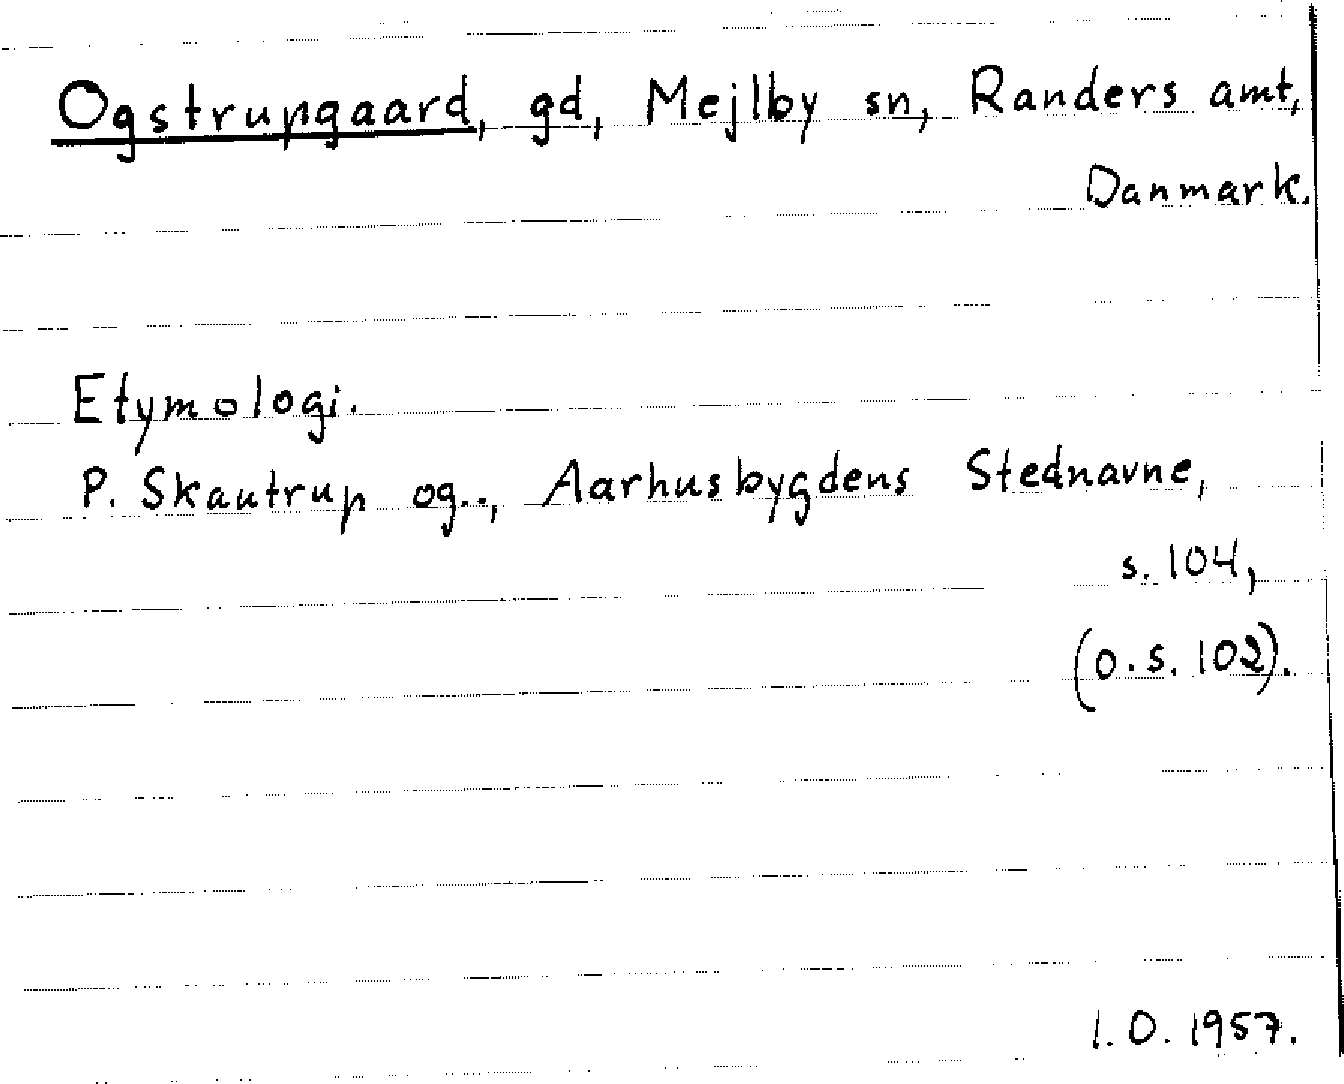 Ogstrupgaard, gd, Mejlby sn, Randers amt,
Danmark.
Etymologi.
P. Skautrup og.., Aarhusbygdens Stednavne,
s. 104,
(o.s. 102).
I. O. 1957.